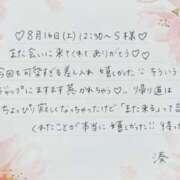 ♡8月16日(土)12:30〜S様♡
また会いに来てくれてありがとう♡
今回も可愛すぎる差し入れ 嬉しかった♡ そういう
ギャップにますます惹かれちゃう♡ 帰り道は
ちょっぴり寂しくなっちゃったけど「また来る」って言
くれたことが本当に嬉しかった!! 待っ
湊